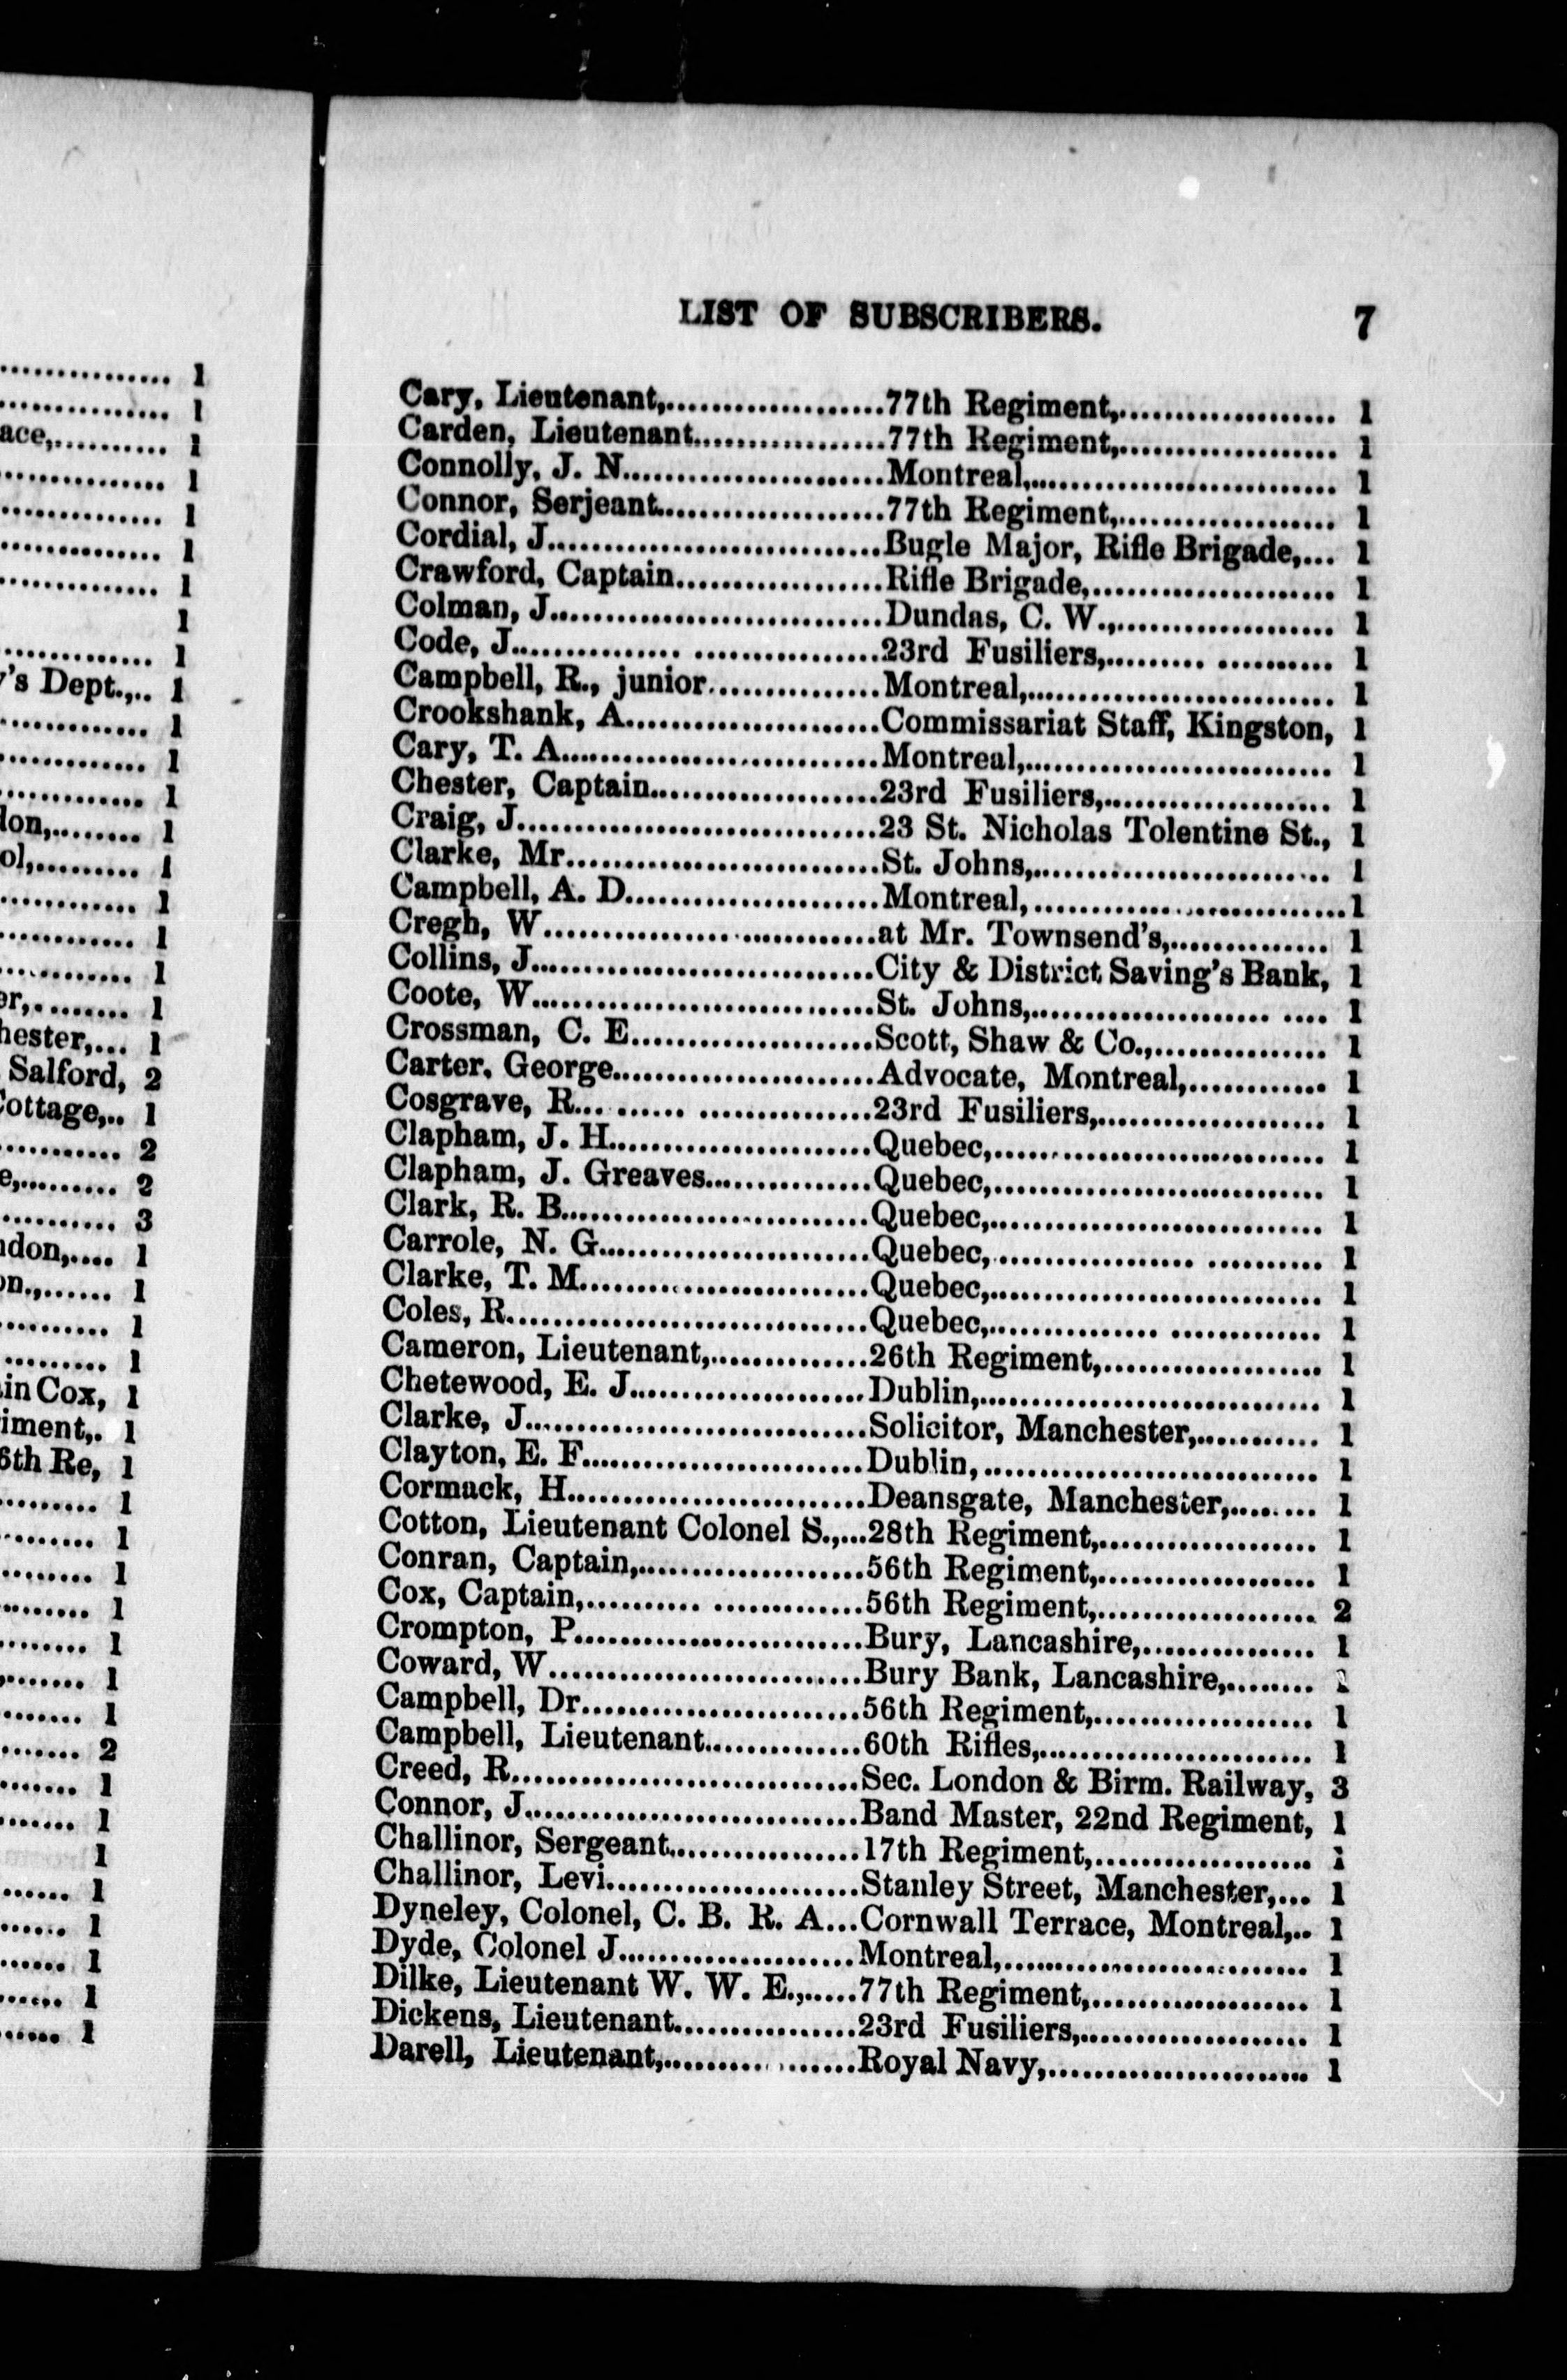 LIST OF SUBSCRIBERS. 7
Cary, Lieutenant,....................77th Regiment,................... 1
Carden, Lieutenant..................77th Regiment,................... 1
Connolly, J. N........................Montreal,........................... 1
Connor, Serjeant.....................77th Regiment,................... 1
Cordial, J..............................Bugle Major, Rifle Brigade,... 1
Crawford, Captain...................Rifle Brigade,...................... 1
Colman, J..............................Dundas, C. W.,................... 1
Code, J................ .................23rd Fusiliers,......... .......... 1
Campbell, R., junior................Montreal,........................... 1
Crookshank, A.......................Commissariat Staff, Kingston, 1
Cary, T. A.............................Montreal,........................... 1
Chester, Captain.....................23rd Fusiliers,.................... 1
Craig, J.................................23 St. Nicholas Tolentine St., 1
Clarke, Mr.............................St. Johns,.......................... 1
Campbell, A. D.......................Montreal,............................1
Cregh, W................. .............at Mr. Townsend's,.............. 1
Collins, J...............................City & District Saving's Bank, 1
Coote, W...............................St. Johns,..................... .... 1
Crossman, C. E......................Scott, Shaw & Co.,............... 1
Carter, George........................Advocate, Montreal,............ 1
Cosgrave, R... ...... ................23rd Fusiliers,.................... 1
Clapham, J. H........................Quebec,............................. 1
Clapham, J. Greaves...............Quebec,............................. 1
Clark, R. B............................Quebec,............................. 1
Carrole, N. G.........................Quebec,................ .......... 1
Clarke, T. M..........................Quebec,............................. 1
Coles, R................................Quebec,............... ............. 1
Cameron, Lieutenant,..............26th Regiment,.................... 1
Chetewood, E. J.....................Dublin,.............................. 1
Clarke, J...............................Solicitor, Manchester,........... 1
Clayton, E. F.........................Dublin,.............................. 1
Cormack, H...........................Deansgate, Manchester,........ 1
Cotton, Lieutenant Colonel S.,...28th Regiment,................... 1
Conran, Captain,....................56th Regiment,................... 1
Cox, Captain,.......... .............56th Regiment,................... 2
Crompton, P..........................Bury, Lancashire,............... 1
Coward, W............................Bury Bank, Lancashire,........
Campbell, Dr.........................56th Regiment,................... 1
Campbell, Lieutenant..............60th Rifles,........................ 1
Creed, R...............................Sec. London & Birm. Railway, 3
Connor, J..............................Band Master, 22nd Regiment, 1
Challinor, Sergeant.................17th Regiment,................... 1
Challinor, Levi.......................Stanley Street, Manchester,... 1
Dyneley, Colonel, C. B. R. A...Cornwall Terrace, Montreal,.. 1
Dyde, Colonel J.....................Montreal,........................... 1
Dilke, Lieutenant W. W. E.,.....77th Regiment,................... 1
Dickens, Lieutenant................23rd Fusiliers,.................... 1
Darell, Lieutenant,.......... .......Royal Navy,....................... 1